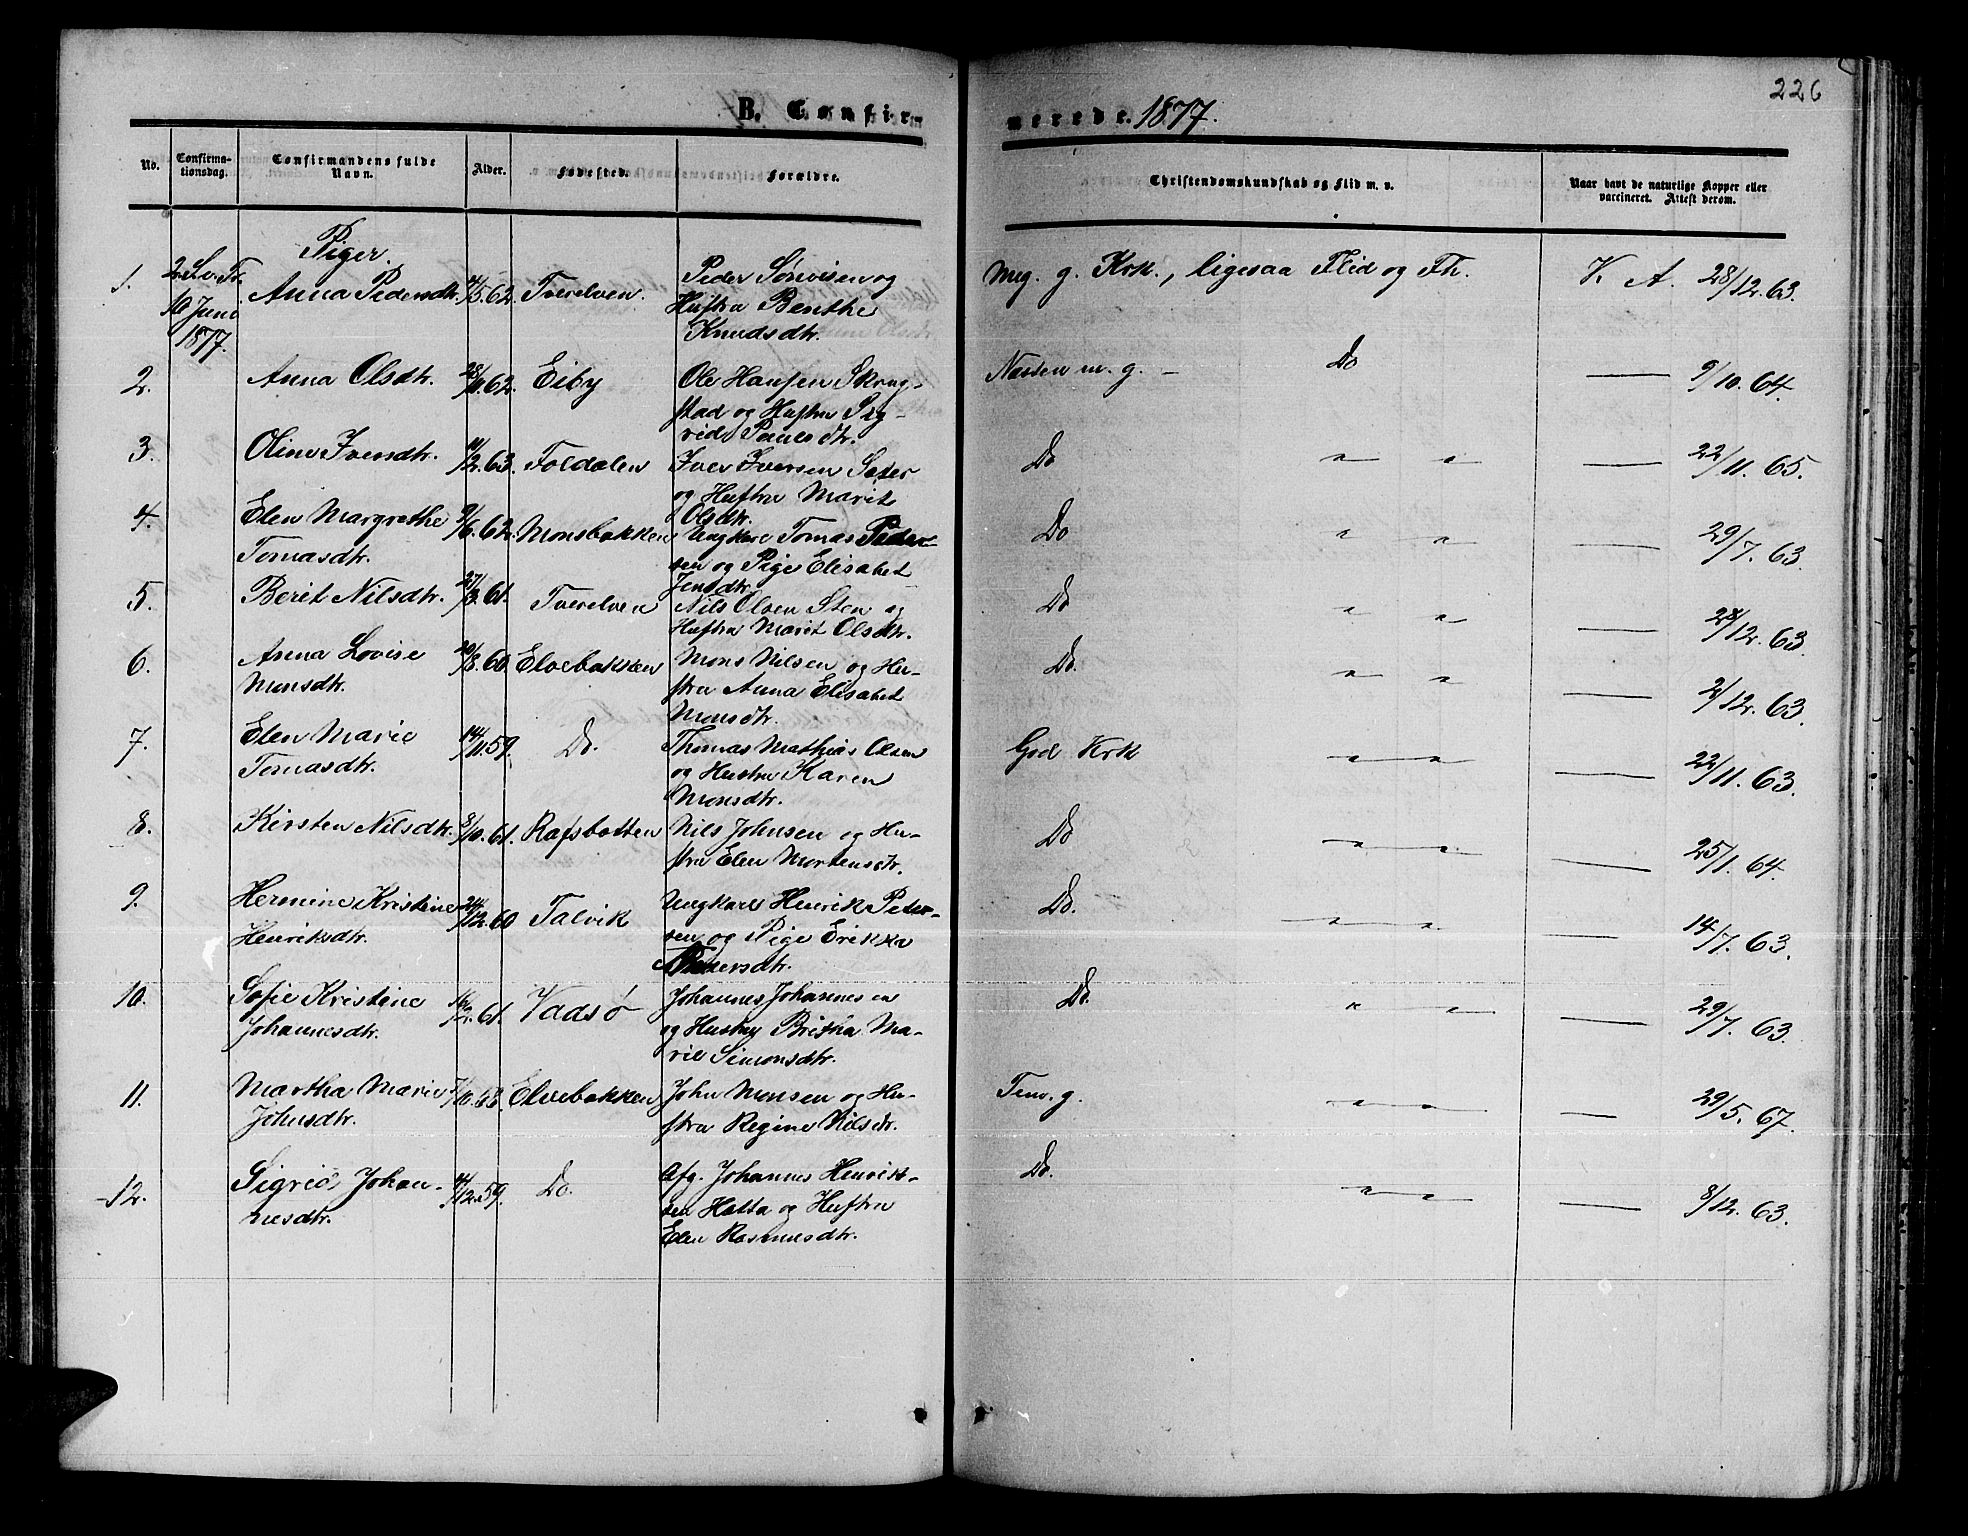 226
B. Confirmerede. 1877.
No. Confirmationsdag. Confirmandens fulde Navn. Alder. Fødested. Forældre. Christendomskundskab og Flid m. v. Naar havt de naturlige Kopper eller vaccineret. Attest derom.
Piger.
1. 2 S. e. Tr. 10 Juni 1877. Anna Pedersdtr. /5.62. Tverelven. Peder Sørensen og
Hustru Benthe
Knudsdtr.
Meg. g. Krk., ligesaa Flid og Fh. K. A. 28/12.63.
2. Anna Olsdtr. 28/11.62. Eiby Ole Hansen Skrug-
stad og Hustru Sig-
rid Paulsdtr.
Næsten m. g. - Do — 9/10.64.
3. Oline Iversdtr. 11/2.63. Toldalen Iver Iversen Sæter
og Hustru Marit
Olsdtr.
Do " " — 22/11.65.
4. Elen Margrethe
Tomasdtr. /6.62. Monsbakken Ungkarl Tomas Peder-
sen og Pige Elisabet
Jensdtr.
Do " " — 29/7.63.
5. Berit Nilsdtr. 27/3.61. Tverelven Nils Olsen Sten og
Hustru Marit Olsdtr.
Do " " — 28/12.63.
6. Anna Lovise
Monsdtr. 20/8.60. Elvebakken Mons Nilsen og Hu-
stru Anna Elisabet
Monsdtr.
Do. " " — 2/12.63.
7. Elen Marie
Tomasdtr. 14/11.59. Do. Thomas Mathias Olsen
og Hustru Karen
Monsdtr.
God Krk " " — 22/11.63.
8. Kirsten Nilsdtr. 8/10.61. Rafsbotten Nils Johnsen og Hu-
stru Elen Mortensdtr.
Do " " — 25/1.64.
9. Hermine Kristine
Henriksdtr. 24/12.60 Talvik Ungkarl Henrik Peter-
sen og Pige Erikka
Pedersdtr.
Do. " " — 14/7.63.
10. Sofie Kristine
Johannesdtr. 16/2.61. Vadsø Johannes Johannesen
og Hustru Britha Ma-
rie Simonsdtr.
Do. " " — 29/7.63.
11. Martha Marie
Johnsdtr. 7/10.63. Elvebakken John Monsen og Hu-
stru Regine Nilsdtr.
Tem. g. " " — 29/5.67.
12. Sigrid Johan-
nesdtr. 14/12.59. Do. Afg. Johannes Henrik-
sen Hætta og Hustru
Elen Rasmusdtr.
Do. " " — 8/12.63.